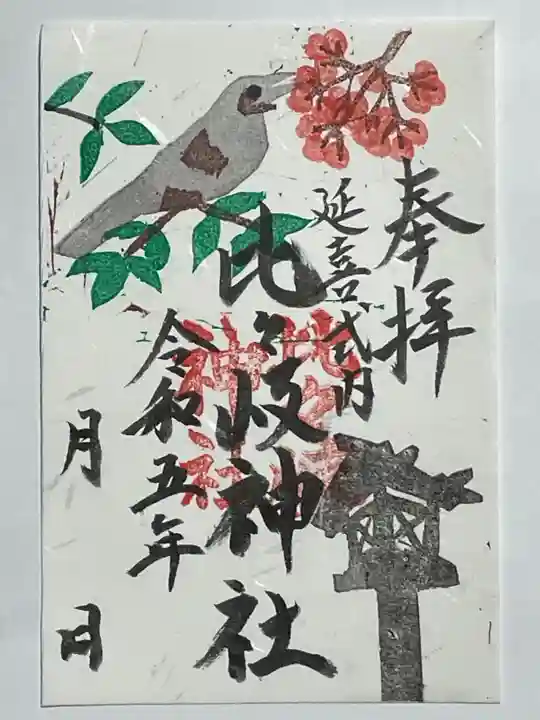 奉拝
延喜式内
比々岐神社
令和五年
月
日